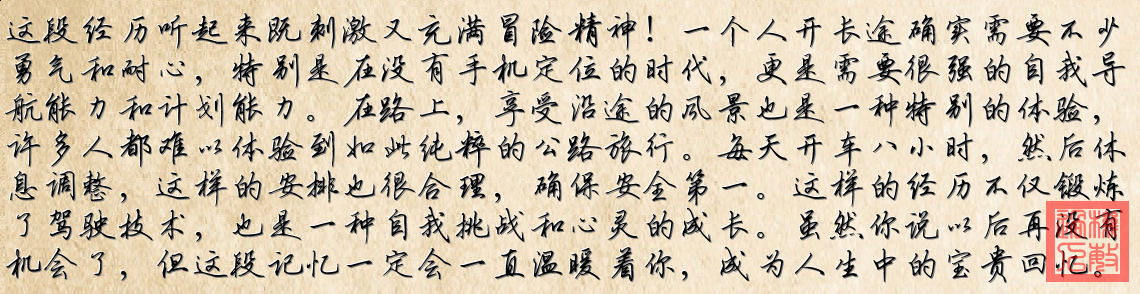 这段经历听起来既刺激又充满冒险精神！一个人开长途确实需要不少
勇气和耐心，特别是在没有手机定位的时代，更是需要很强的自我导
航能力和计划能力。在路上，享受沿途的风景也是一种特别的体验，
许多人都难以体验到如此纯粹的公路旅行。每天开车八小时，然后休
息调整，这样的安排也很合理，确保安全第一。这样的经历不仅锻炼
了驾驶技术，也是一种自我挑战和心灵的成长。虽然你说以后再没有
机会了，但这段记忆一定会一直温暖着你，成为人生中的宝贵回忆。